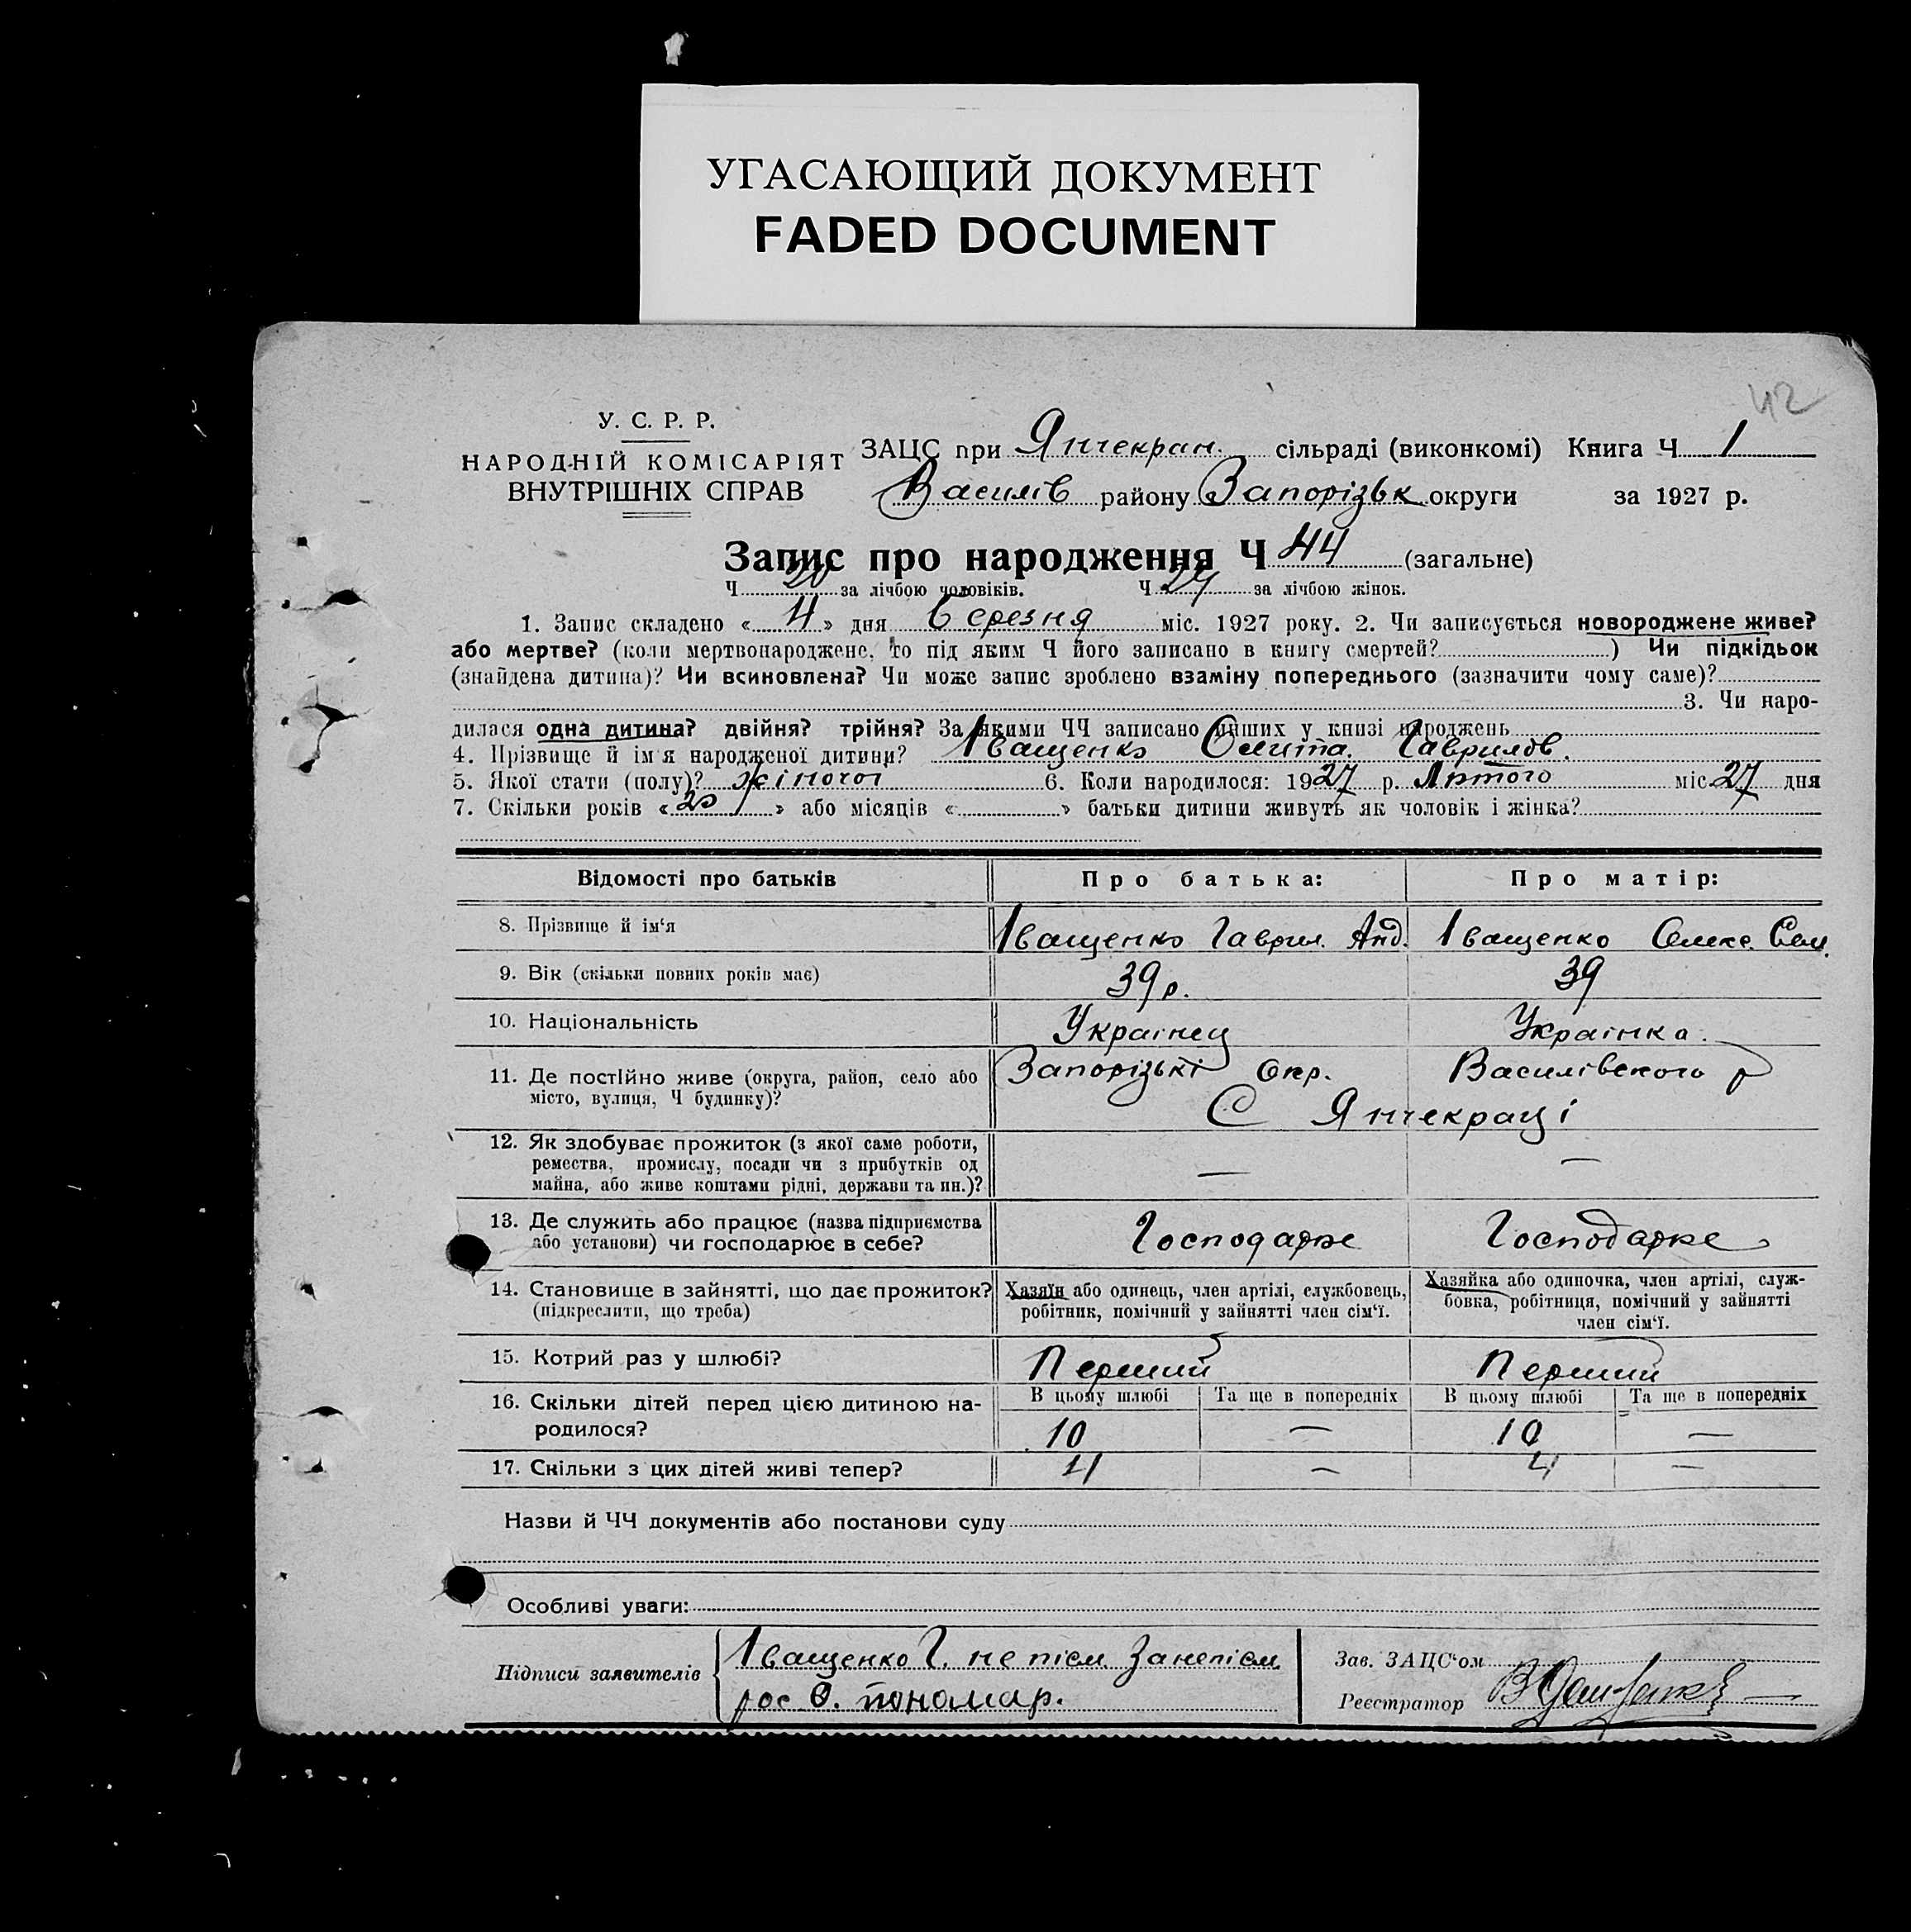 УГАСАЮЩИЙ ДОКУМЕНТ
FADED DOCUMENT
42
У. С. Р. Р.
НАРОДНІЙ КОМІСАРІЯТ
ВНУТРІШНІХ СПРАВ
ЗАЦС при Янчекран. сільраді (виконкомі) Книга Ч 1
Василів району Запорізьк округи за 1927 р.
Запис про народження Ч 44 (загальне)
Ч 20 за лічбою чоловіків. Ч 24 за лічбою жінок.
1. Запис складено «4» дня Березня міс. 1927 року. 2. Чи записується новороджене живе?
або мертве? (коли мертвонароджене, то під яким Ч його записано в книгу смертей? ) Чи підкідьок
(знайдена дитина)? Чи всиновлена? Чи може запис зроблено взаміну попереднього (зазначити чому саме)?
3. Чи наро-
дилася одна дитина? двійня? трійня? За якими ЧЧ записано инших у книзі народжень
4. Прізвище й ім'я народженої дитини? Іващенко Гаврилов.
5. Якої статі (полу)? жіночої 6. Коли народилося: 1927 р. Лютого міс. 27 дня
7. Скільки років «20» або місяців « » батьки дитини живуть як чоловік і жінка?
Відомості про батьків Про батька: Про матір:
8. Прізвище й ім'я Іващенко Гаврил. Анд. Іващенко Олекс. Сем.
9. Вік (скільки повних років має) 39 р. 39
10. Національність Украінец Украінка.
11. Де постійно живе (округа, район, село або Запорізькі Окр. Василівського р
місто, вулиця, Ч будинку)? С Янчекраці
12. Як здобуває прожиток (з якої саме роботи, — —
ремества, промислу, посади чи з прибутків од
майна, або живе коштами рідні, держави та ин.)?
13. Де служить або працює (назва підприємства Господарює Господарює
або установи) чи господарює в себе?
14. Становище в зайнятті, що дає прожиток? Хазяїн або одинець, член артілі, службовець, Хазяйка або одиночка, член артілі, служ-
(підкреслити, що треба) робітник, помічний у зайнятті член сім'ї. бовка, робітниця, помічний у зайнятті
член сім'ї.
15. Котрий раз у шлюбі? Перший Перший
16. Скільки дітей перед цією дитиною на- В цьому шлюбі Та ще в попередніх В цьому шлюбі Та ще в попередніх
родилося? 10 — 10 —
17. Скільки з цих дітей живі тепер? 4 — 4 —
Назви й ЧЧ документів або постанови суду
Особливі уваги:
Підписи заявителів Іващенко Г. не písм. За непісм
рос О. Пономар.
Зав. ЗАЦС'ом
Реєстратор